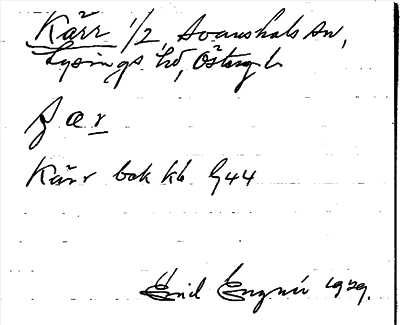 Kärr 1/2, Svanshals sn,
Lysings hd, Östergl
ʒ æ r
Kärr bok kb 1944
Emil Engnér 1929.